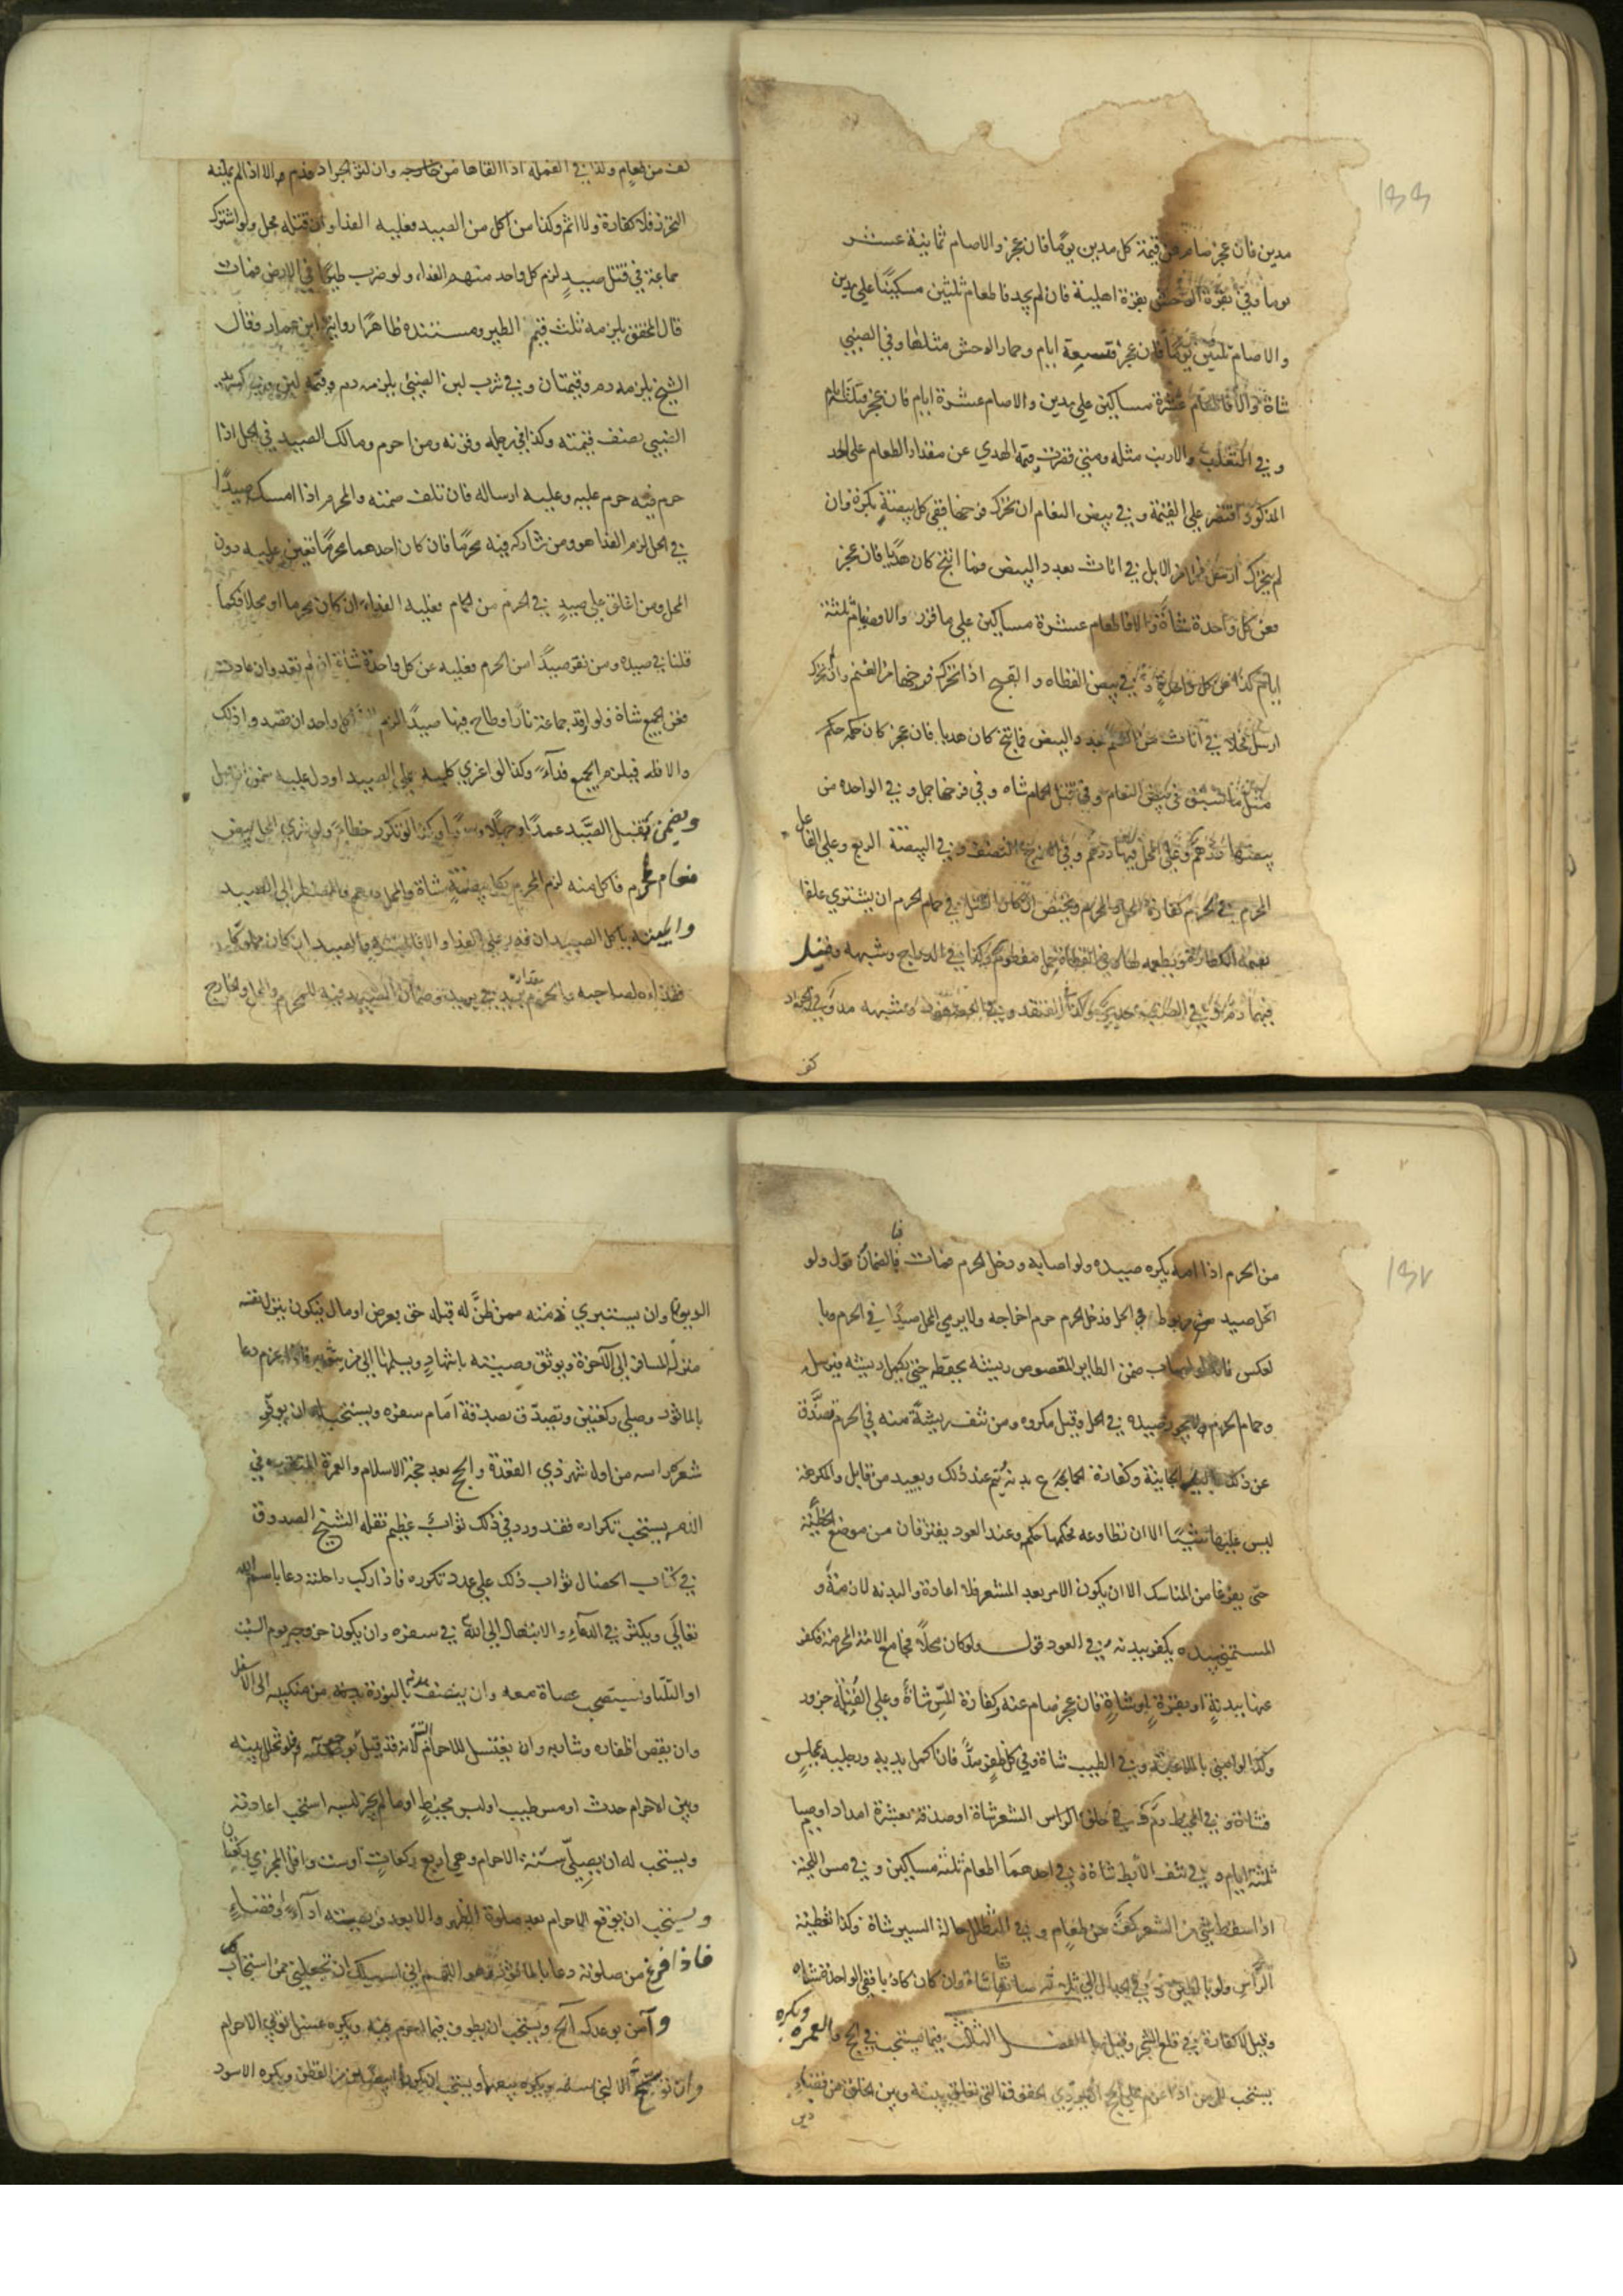 ١٣٦
مدين فان عجز صام عن قيمة كل مدين يوما فان عجز والاصام ثمانية عشر
يوما وفي بقرة الوحش بقرة اهلية فان لم يجد فاطعام ثلثين مسكينا علي مدين
والاصام ثلثين يوما فان عجز فتسعة ايام وحمار الوحش مثلها وفي الضبي
شاة والا فاطعام عشرة مساكين علي مدين والاصام عشرة ايام فان عجز فثلثة ايام
وفي الثعلب والارنب مثله ومتي قصرت قيمة الهدي عن مقدار الطعام علي الحد
المذكور اقتصر علي القيمة وفي بيض النعام ان تحرك فرخها ففي كل بيضة بكرة وان
لم يتحرك ارسل فحل من الابل في اناث بعدد البيض فما انتج كان هديا فان عجز
فعن كل واحدة شاة والا فاطعام عشرة مساكين علي ما قرر والا وصيام ثلثة
ايام كذا عن كل واحدة وفي بيض القطاه والقبج اذا تحرك فرخها من الغنم وان تحرك
ارسل فحلا في اناث من الغنم بعدد البيض فما نتج كان هديا فان عجز كان حكمه حكم
مثل ما سبق في بيض النعام وفي قتل الحمام شاه وفي فرخها حمل وفي الواحده من
بيضها درهم وعلي المحل فيها درهم وفي الفرخ النصف وفي البيضة الربع وعلي الفاعل
المحرم في الحرم كفارة المحل والمحرم ويختص ان كان القتل في حمام الحرم ان يشتري علفا
بقيمة لحمام الحرم يطعمه لها وفي القطاة حمل مفطوم وكذا في الدراج وشبهه وقيل
فيها دم وفي الضب جدي وكذا القنفد وفي العصفور وشبهه مد وفي الجراد
كف
كف من طعام وكذا في القمله اذا القاها من جسده وان كثر الجراد فدم والا اذا لم يمكنه
التحرز فلا كفارة ولا اثم وكذا من اكل من الصيد فعليه الفدا وان قتله محل ولو اشترك
جماعة في قتل صيد لزم كل واحد منهم الفداء ولو ضرب طيرا في الارض فمات
قال المحقق يلزمه ثلث قيم الطير ومستنده ظاهرا رواية ابن عمار وقال
الشيخ يلزمه دم وقيمتان وفي شرب لبن الضبي يلزمه دم وقيمة لبن وفي كسر يد
الضبي نصف قيمته وكذا في رجله وقرنه ومن احرم ومالك الصيد في الحل اذا
حرم فيه حرم عليه وعليه ارساله فان تلف ضمنه والمحرم اذا امسك صيدا
في الحل لزم الفدا هو ومن شاركه فيه محرما فان كان احدهما محرما تعين عليه دون
المحل ومن اغلق علي صيد في الحرم من الحمام فعليه الفداء ان كان محرما او محلا فكما
قلنا في صيده ومن نفر صيدا من الحرم فعليه عن كل واحدة شاة ان لم تعد وان عادت
فعن الجميع شاة ولو اوقد جماعة نارا وطاح فيها صيدا لزم كل واحد ان قصد وا ذلك
والا فلا فيلزم الجميع فدآء وكذا لو اغري كلبه علي الصيد او دل عليه ضمن ان قتل
ويضمن بقتل الصيد عمدا او جهلا وكذا لو تكرر خطاء ولو شري المحل بيض
نعام لمحرم فاكل منه لزم المحرم بكل بيضة شاة والمحل درهم والمضطر الي الصيد
والميتة ياكل الصيد ان قدر علي الفدا والا فالميتة والصيد ان كان مملوكا
ففداءه لصاحبه والحرم مقداره بريد في بريد وضمان الصيد فيه للمحرم والمحل والخارج
١٣٧
من الحرم اذا امه يكره صيده ولو اصابه ودخل الحرم فمات فالضمان قول ولو
اكل صيد مربوط في الحل فدخل الحرم حرم اخراجه ولا يرمي المحل صيدا في الحرم وبا
لعكس ضمن الطاير المقصوص ريشه يحفظه حتي يكمل ريشه فيرسل
وحمام الحرم ولا يجوز صيده في الحل وقيل مكروه ومن نتف ريشة منه في الحرم تصدق
عن ذلك باليد الجانية وكفارة الجماع بدنه يتم عند ذلك ويعيد من قابل والمكرهة
ليس عليها شيئا الا ان تطاوعه فحكمها حكم وعند العود يفترقان من موضع الخطيئة
حتي يفرغا من المناسك الا ان يكون الامر بعد المشعر فلا اعادة والبدنه لازمة و
المستمني بيده يكفر ببدنه في العود قول ولو كان محلا فجامع الامة المحرمة فكفر
عنها ببدنة او بقرة او شاة فان عجز صام عنه وكفارة المس شاة وعلي القبلة جزور
وكذا لو امني بالملاعبة وفي الطيب شاة وفي كل ظفر مد فان اكمل يديه ورجليه بمجلس
فشاة وفي المخيط دم وفي حلق الراس الشعر شاة او صدقة بعشرة امداد او صيام
ثلثة ايام وفي نتف الابط شاة وفي احدهما اطعام ثلثة مساكين وفي مس اللحية
اذا سقط شي من الشعر كف من طعام وفي التظلل حالة السير شاة وكذا تغطية
الراس ولو بالطين وفي الجدال الي ثلثه صادقا شاة وان كان كاذبا ففي الواحدة شاه
وقيل لا كفارة في قلع الشجر وقيل بها الفصل الثالث فيما يستحب في الحج والعمره ويكره
يستحب للمومن اذا عزم علي الحج ان يودي الحقوق التي تعلق بينه وبين الخلق من قضاء
دين
الديون وان يستبري ذمته ممن ظن له قبله حق بعرض او مال فيكون ينزل نفسه
منزلة المسافر الي الآخرة ويوثق وصيته باشهاد ويسلمها الي من يثق به فاذا عزم دعا
بالماثور وصلي ركعتين وتصدق بصدقة امام سفره ويستحب له ان يوفر
شعر راسه من اول شهر ذي القعدة والحج بعد حجة الاسلام والعمرة المتعينه في
الذمه يستحب تكراره فقد ورد في ذلك ثواب عظيم نقله الشيخ الصدوق
في كتاب الخصال ثواب ذلك علي عدد تكرره فاذا ركب راحلته دعا باسم الله
تعالي ويكثر في الدعاء والابتهال الي الله في سفره وان يكون خروجه يوم السبت
او الثلثاء ويستصحب عصاة معه وان ينظف بدنه بالنورة من منكبيه الي الاسفل
وان يقص اظفاره وشاربه وان يغتسل للاحرام لانه قد قيل بوجوبه ولو تخلل بينه
وبين الاحرام حدث او مس طيب او لبس مخيط او ما لم يجز لبسه استحب اعادته
ويستحب له ان يصلي سنة الاحرام وهي اربع ركعات او ست واقل المجزي ركعتان
ويستحب ان يوقع الاحرام بعد صلوة الظهر والا بعد فريضة اداء وقضاء
فاذا فرغ من صلوته دعا بالماثور وهو اللهم اني اسئلك ان تجعلني ممن استجاب لك
وآمن بوعدك الخ ويستحب ان يطوف فيما احرم فيه ويكره غسل ثوبي الاحرام
وان توسخ الا لنجاسه ويكره بيعها ويستحب ان يكون ابيض من القطن ويكره الاسود